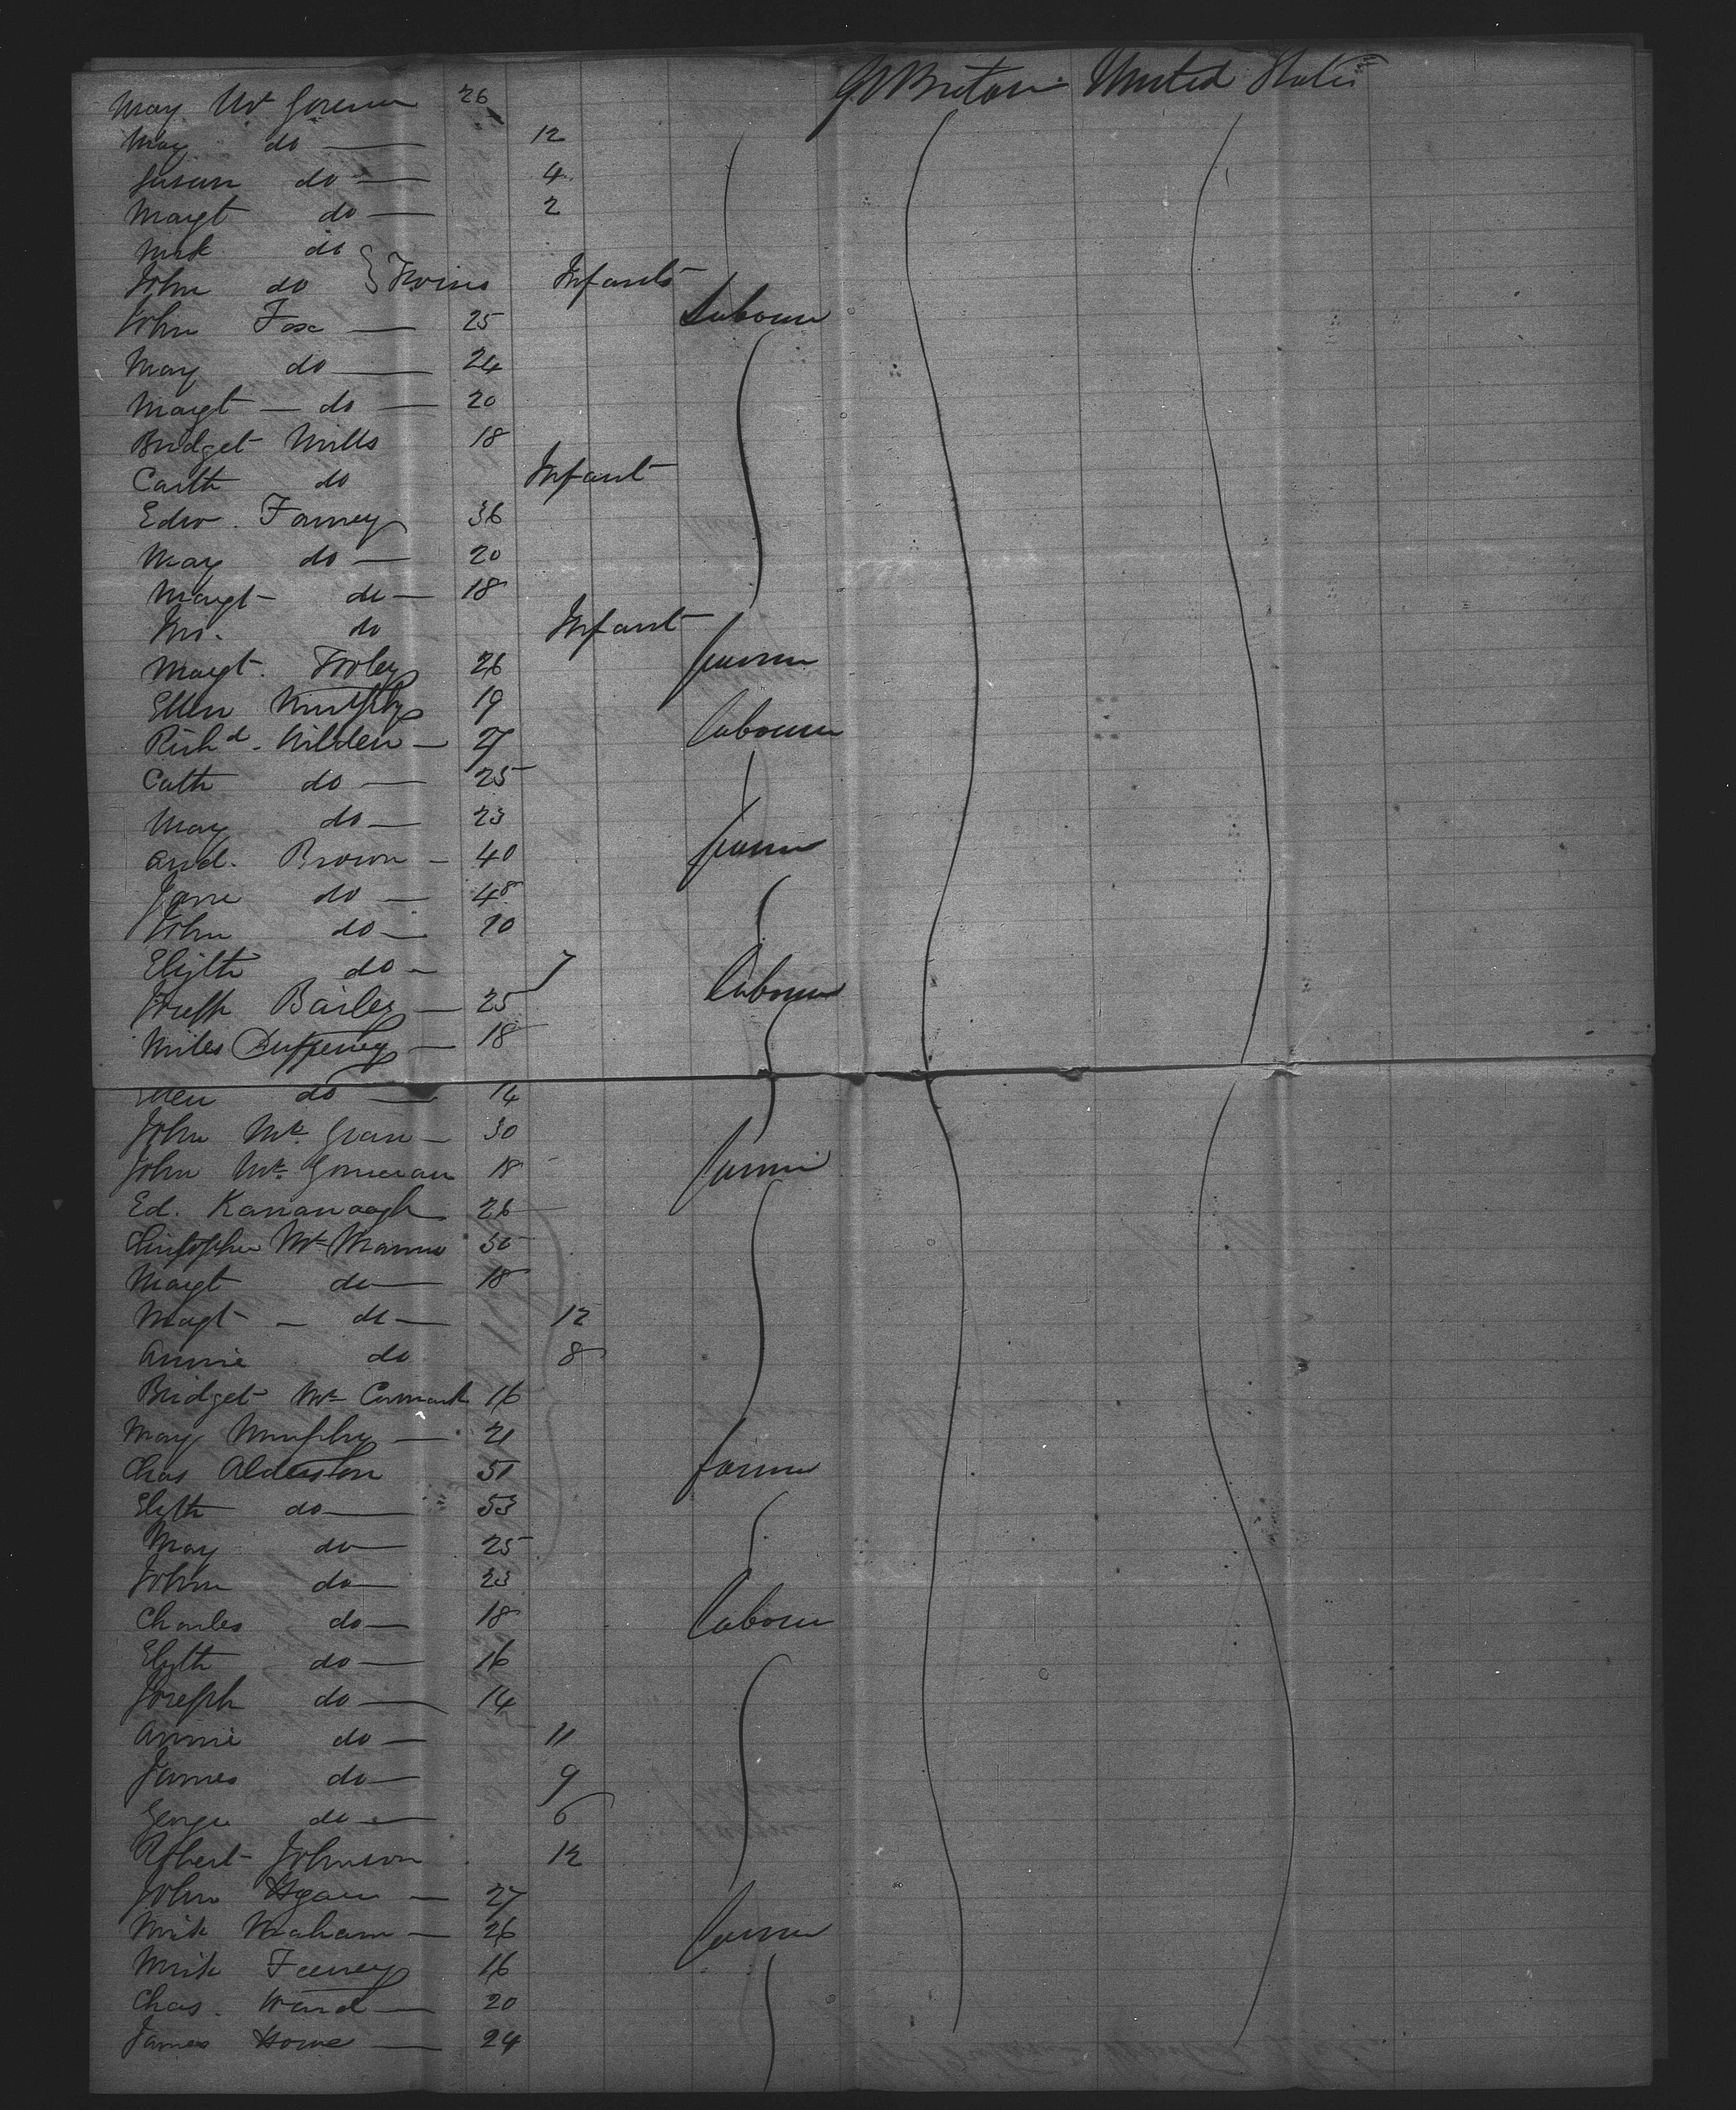 May Mc Govern 26 Gt Britain United States
May do 12
Susan do 4
Margt do 2
Mick do
John do } Twins Infants
John Fox 25 Labourer
May do 24
Margt do 20
Bridget Mills 18
Cath do Infant
Edw. Farney 36
May do 20
Margt do 18
Jno. do Infant
Margt. Foley 26 farmer
Ellen Murphy 19
Richd. Wilden 27 labourer
Cath do 25
May do 23
And. Brown 40 farmer
Jane do 48
John do 10
Elizth do 7
Joseph Bailey 25 labourer
Miles 18
Ellen do 14
John Mc Gran 30
John Mc 18 farmer
Ed. Kavanaagh 26
Christopher Mc Manus 30
Margt do 18
Magt do 12
Annie do 8
Bridget Mc Cormack 16
May Murphy 21
Chas Alderston 51 farmer
Elizth do 53
May do 25
John do 23
Charles do 18 labourer
Elizth do 16
Joseph do 14
Annie do 11
James do 9
George do 6
Robert Johnson 12
John 27
Mick Mahan 26 farmer
Mick Feeney 16
Chas. Ward 20
James Howe 24